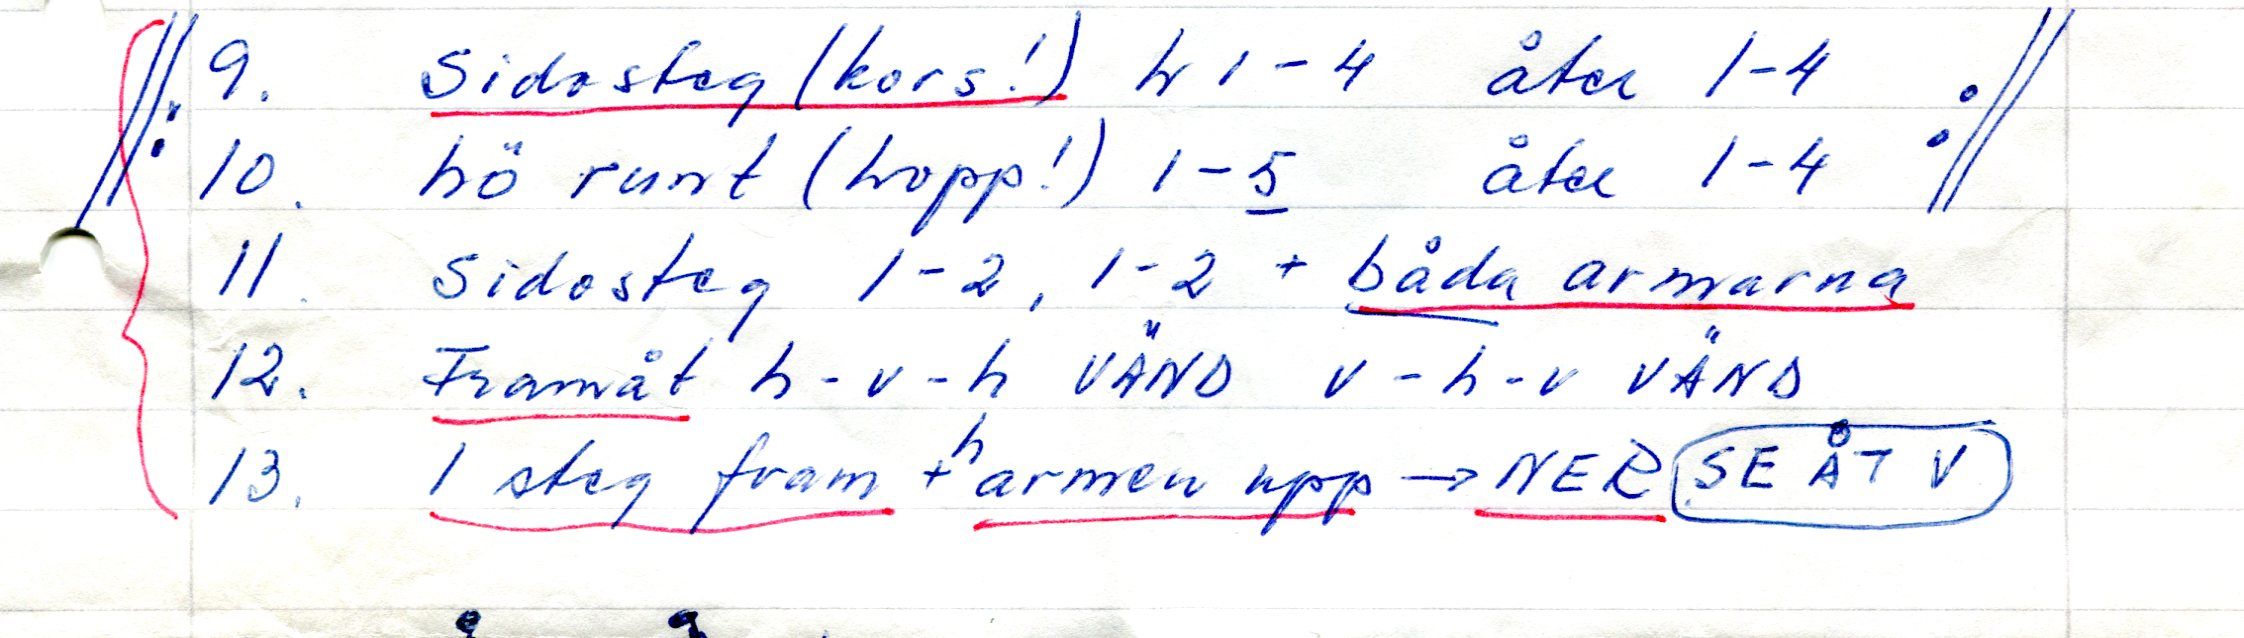 9. Sidosteg (kors!) h 1-4 åter 1-4
10. hö runt (hopp!) 1-5 åter 1-4
11. Sidosteg 1-2, 1-2 + båda armarna
12. Framåt h-v-h VÄND v-h-v VÄND
13. 1 steg fram + h armen upp → NER SE ÅT V